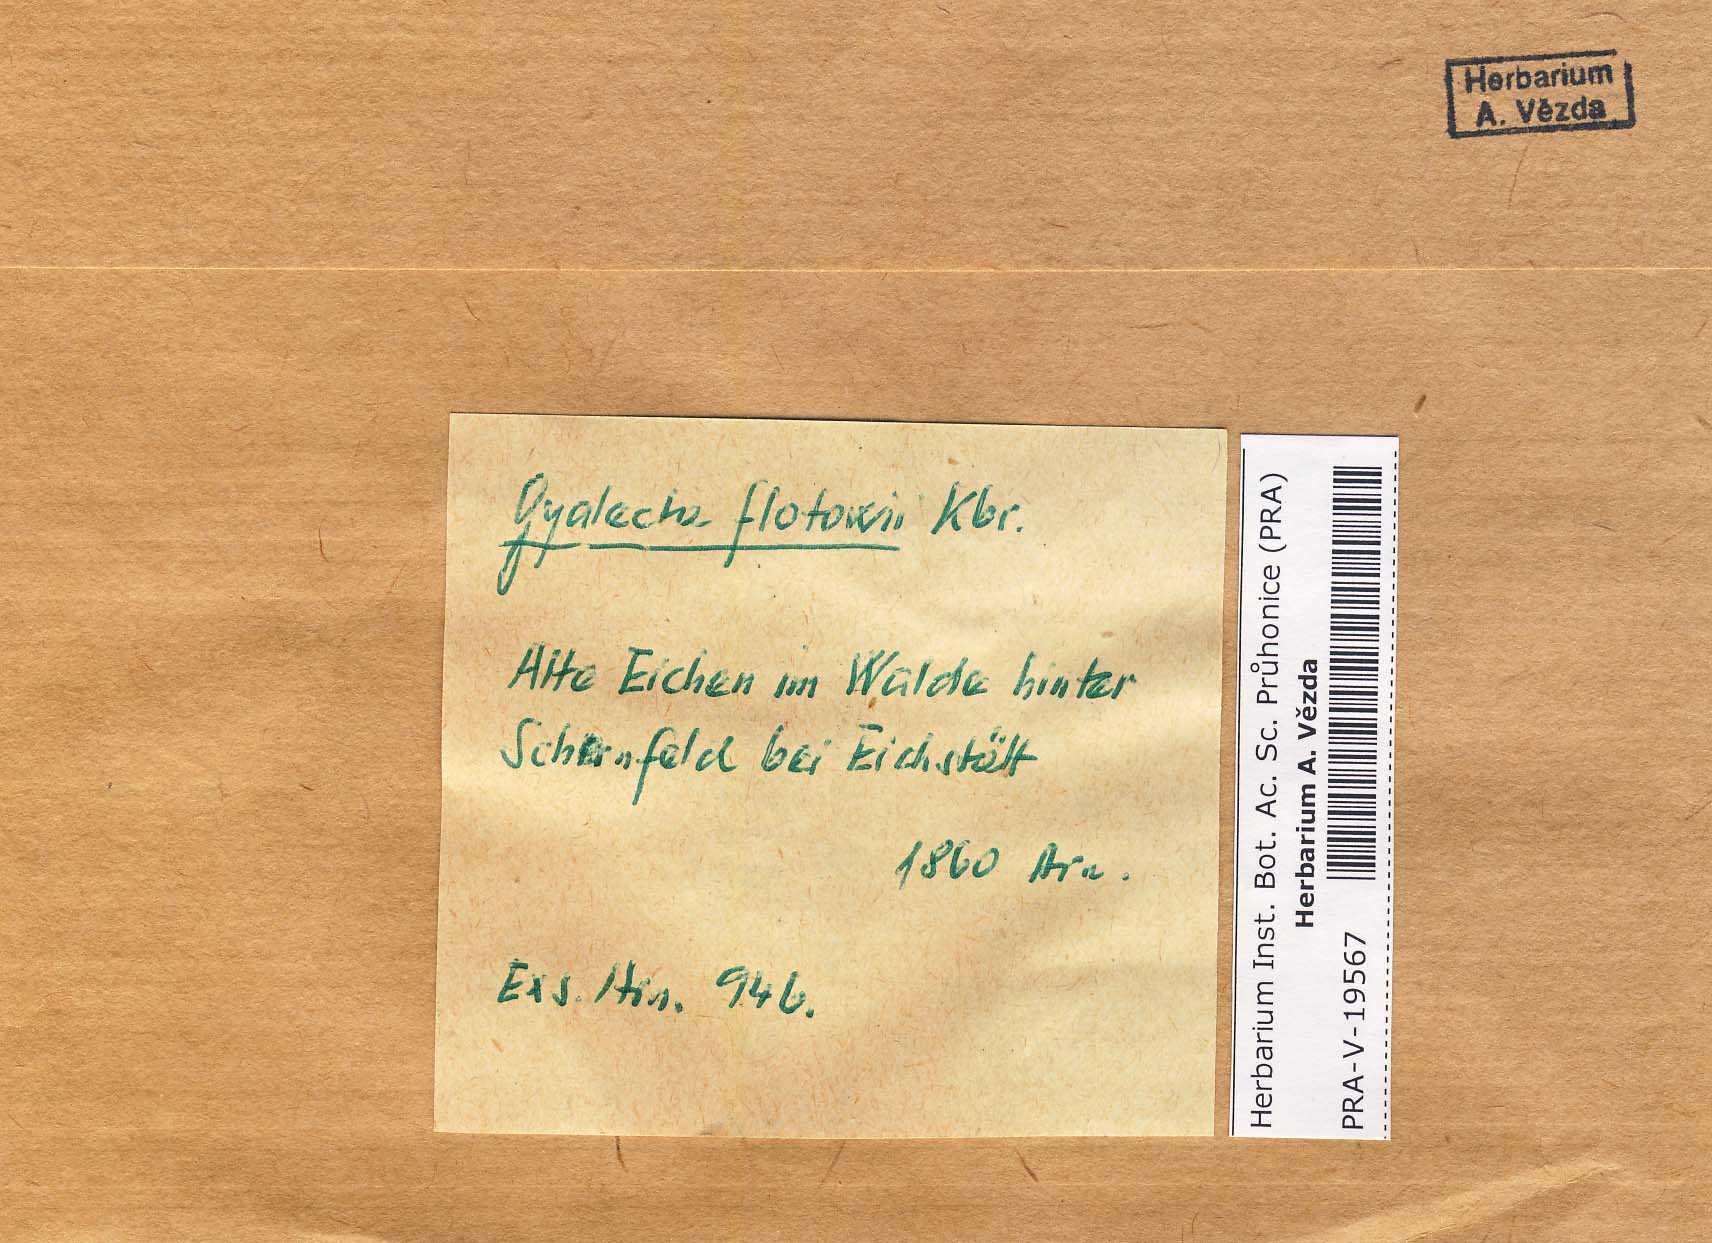 Herbarium
A. Vězda
Gyalecta flotowii Kbr.
Alte Eichen im Walde hinter
Schernfeld bei Eichstätt
1860 Arn.
Exs. 946.
Herbarium Inst. Bot. Ac. Sc. Průhonice (PRA)
Herbarium A. Vězda
PRA-V-19567